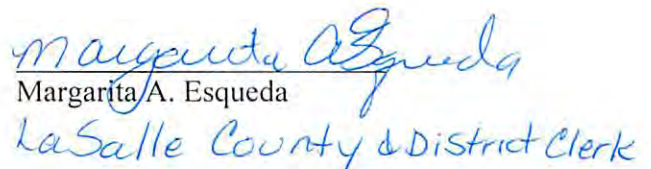 Margarita A Esqueda
Margarita A. Esqueda
LaSalle County & District Clerk